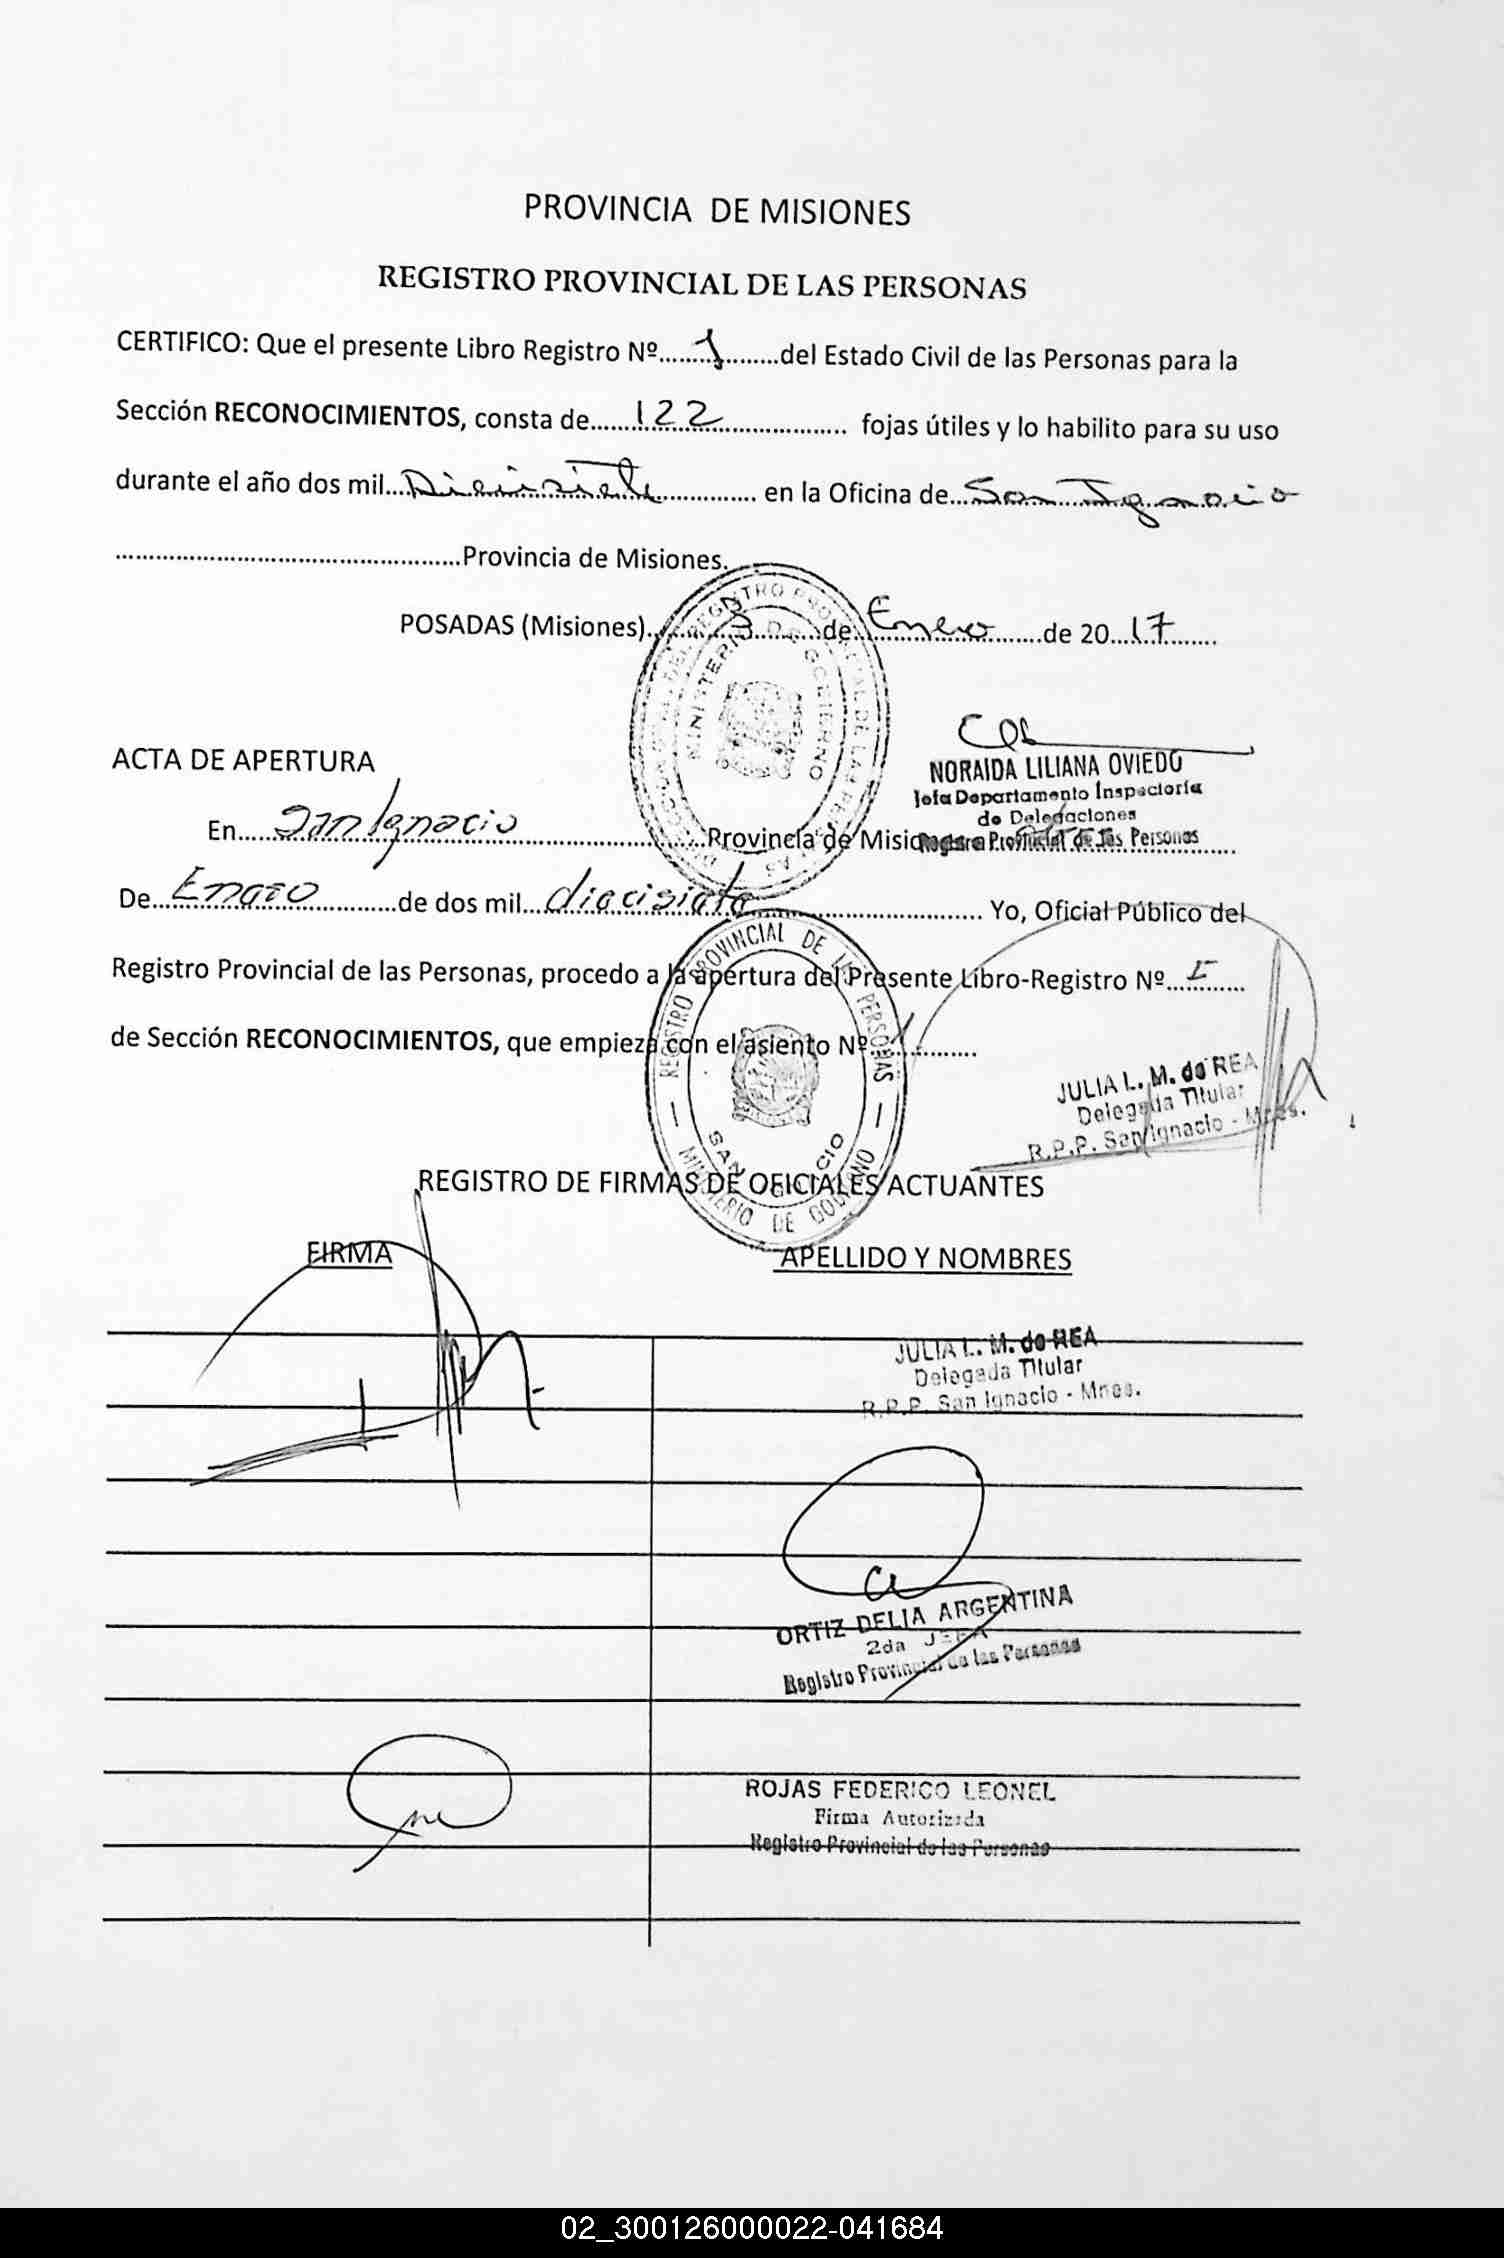 PROVINCIA DE MISIONES
REGISTRO PROVINCIAL DE LAS PERSONAS
CERTIFICO: Que el presente Libro Registro Nº.........1.........del Estado Civil de las Personas para la
Sección RECONOCIMIENTOS, consta de......122.................... fojas útiles y lo habilito para su uso
durante el año dos mil...Diecisiete............... en la Oficina de...San Ignacio
...................................................Provincia de Misiones.
POSADAS (Misiones)............3..........de...Enero.......de 20...17.......
NORAIDA LILIANA OVIEDO
Jefa Departamento Inspectoría
de Delegaciones
Registro Provincial de las Personas
ACTA DE APERTURA
En.....San Ignacio............................Provincia de Misiones
De...Enero............de dos mil...diecisiete.................................. Yo, Oficial Público del
Registro Provincial de las Personas, procedo a la apertura del Presente Libro-Registro Nº...I......
de Sección RECONOCIMIENTOS, que empieza con el asiento Nº...1..........
JULIA L. M. de REA
Delegada Titular
R.P.P. San Ignacio - Mnes.
REGISTRO PROVINCIAL DE LAS PERSONAS
SAN IGNACIO
MINISTERIO DE GOBIERNO
REGISTRO DE FIRMAS DE OFICIALES ACTUANTES
FIRMA APELLIDO Y NOMBRES
JULIA L. M. de REA
Delegada Titular
R.P.P. San Ignacio - Mnes.
ORTIZ DELIA ARGENTINA
2da JEFA
Registro Provincial de las Personas
ROJAS FEDERICO LEONEL
Firma Autorizada
Registro Provincial de las Personas
02_300126000022-041684